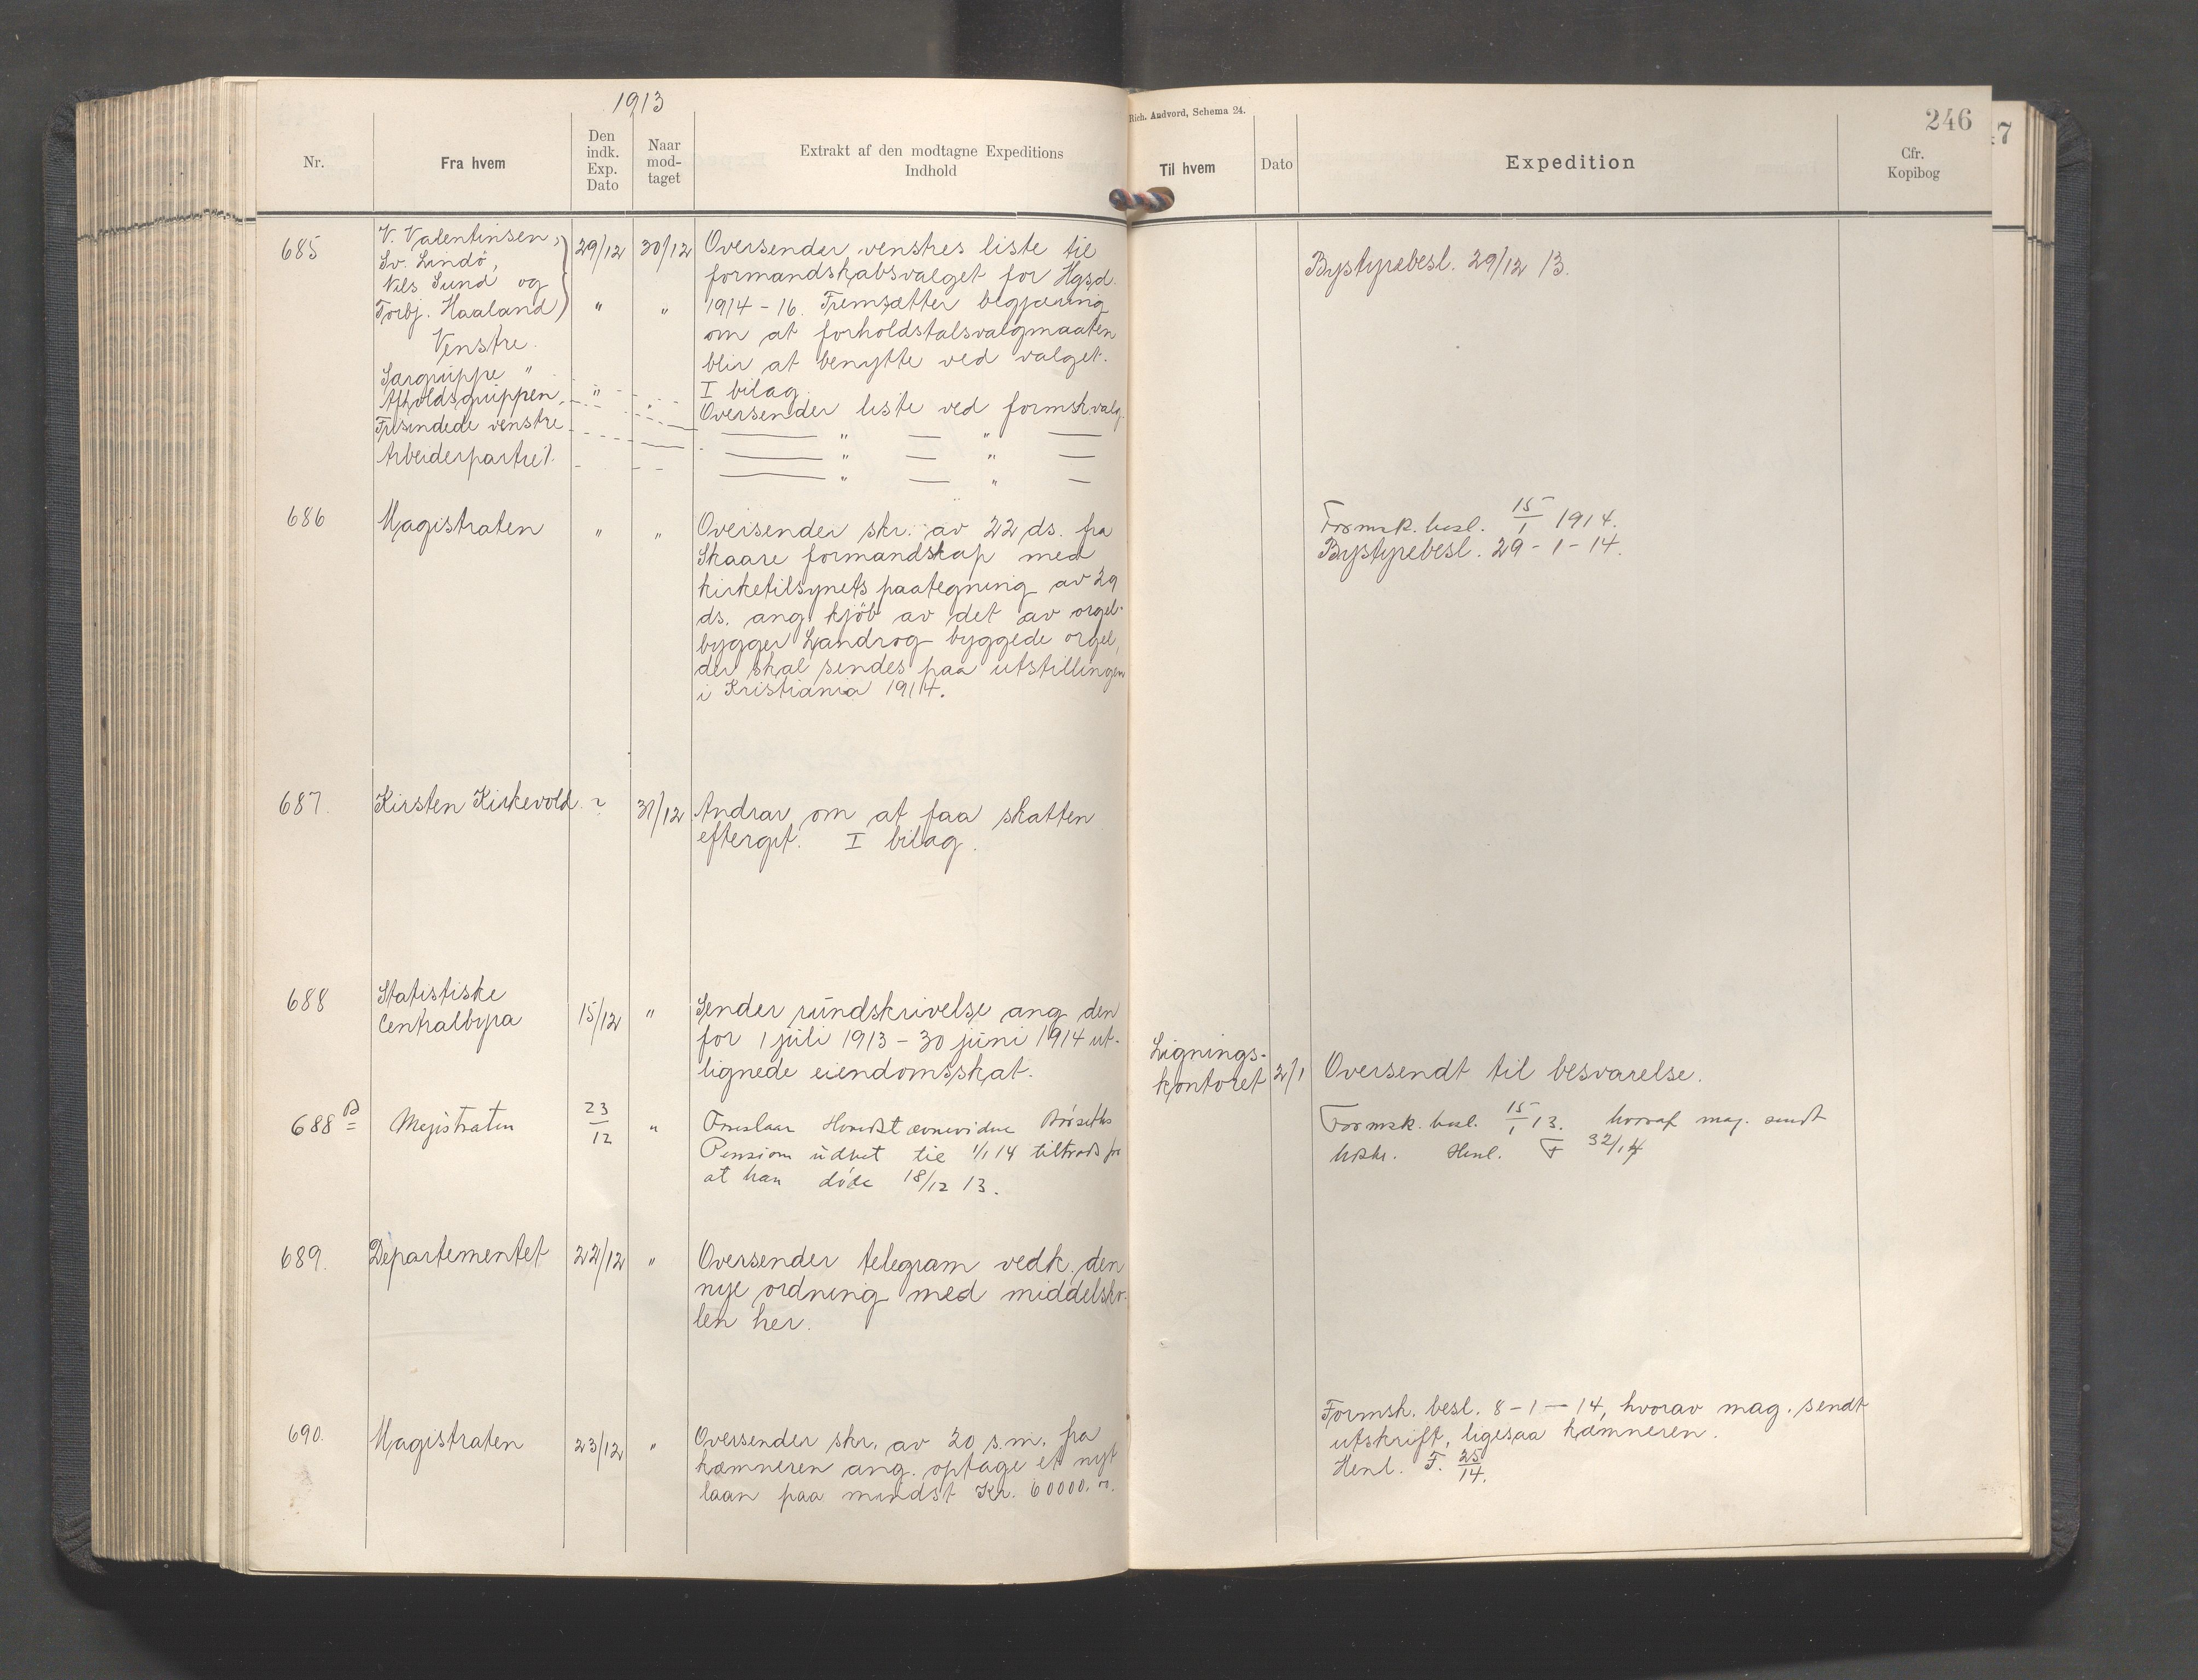 1913
Nr.
Fra hvem
Den
indk.
Exp.
Dato
Naar
mod-
taget
Extrakt af den modtagne Expeditions
Indhold
Rich. Andvord, Schema 24.
Til hvem
Dato
Expedition
246
Cfr.
Kopibog
47
685
V. Valentinsen,
Sv. Lindö,
Nils Sund og
Torbj. Haaland
Venstre.
Særgruppe "
Afholdsgruppen,
Frisindede venstre
Arbeiderpartiet.
29/12
30/12
" "
Oversender venstres liste til
formandskabsvalget for Hgsd.
1914 - 16. Fremsætter begjæring
om at forholdstalsvalgmaaten
blir at benytte ved valget.
I bilag.
Oversender liste ved formskvalg.
— " — " —
— " — " —
— " — " —
Bystyrebesl. 29/12 13.
686
Magistraten
" "
Oversender skr. av 22 ds. fra
Skaare formandskap med
kirketilsynets paategning av 29
ds. ang kjöb av det av orgel-
bygger Landrog byggede orgel,
der skal sendes paa utstillingen
i Kristiania 1914.
Formsk. besl. 15/1 1914.
Bystyrebesl. 29 - 1 - 14.
687.
Kirsten Kirkevold
?
31/12
Andrar om at faa skatten
eftergit. I bilag.
688
Statistiske
Centralbyra
15/12 "
Sender rundskrivelse ang den
for 1 juli 1913 - 30 juni 1914 ut-
lignede eiendomsskat.
Lignings-
kontoret
2/1
Oversendt til besvarelse.
688 B
Magistraten
23/12 "
Foreslaar
Pension til 1/1 14 tiltrods for
at han döde 18/12 13.
Formsk. besl. 15/1 13. hvoraf mag. sendt
utskr. Henl. F 32/14
689.
Departementet
22/12 "
Oversender telegram vedk. den
nye ordning med middelsko-
len her.
690.
Magistraten
23/12 "
Oversender skr. av 20 s.m. fra
kæmneren ang. optage et nyt
laan paa mindst Kr. 60000.
Formsk. besl. 8 - 1 - 14, hvorav mag. sendt
utskrift, ligesaa kæmneren.
Henl. F. 25/14.